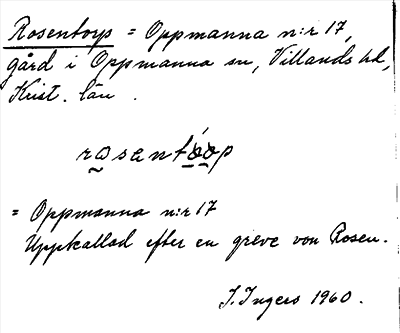 Rosentorp = Oppmanna n:r 17,
gård i Oppmanna sn, Villands hd,
Krist. län.
= Oppmanna n:r 17
Uppkallad efter en greve von Rosen.
J. Ingers 1960.